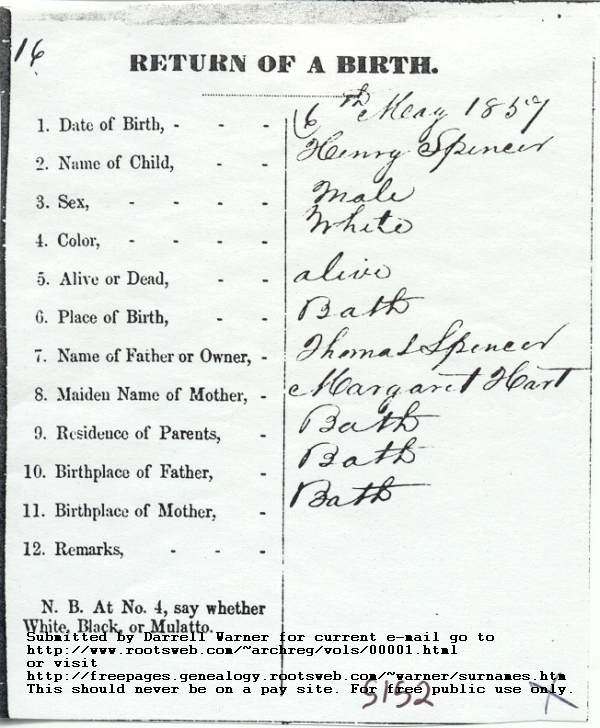 16
RETURN OF A BIRTH.
1. Date of Birth, - - - 6th May 1857
2. Name of Child, - - Henry Spencer
3. Sex, - - - - Male
4. Color, - - - - White
5. Alive or Dead, - - alive
6. Place of Birth, - - Bath
7. Name of Father or Owner, - Thomas Spencer
8. Maiden Name of Mother, - Margaret Hart
9. Residence of Parents, - Bath
10. Birthplace of Father, - Bath
11. Birthplace of Mother, - Bath
12. Remarks, - - -
N. B. At No. 4, say whether
White, Black, or Mulatto.
Submitted by Darrell Warner for current e-mail go to
http://www.rootsweb.com/~archreg/vols/00001.html
or visit
http://freepages.genealogy.rootsweb.com/~warner/surnames.htm
This should never be on a pay site. For free public use only.
5152 X